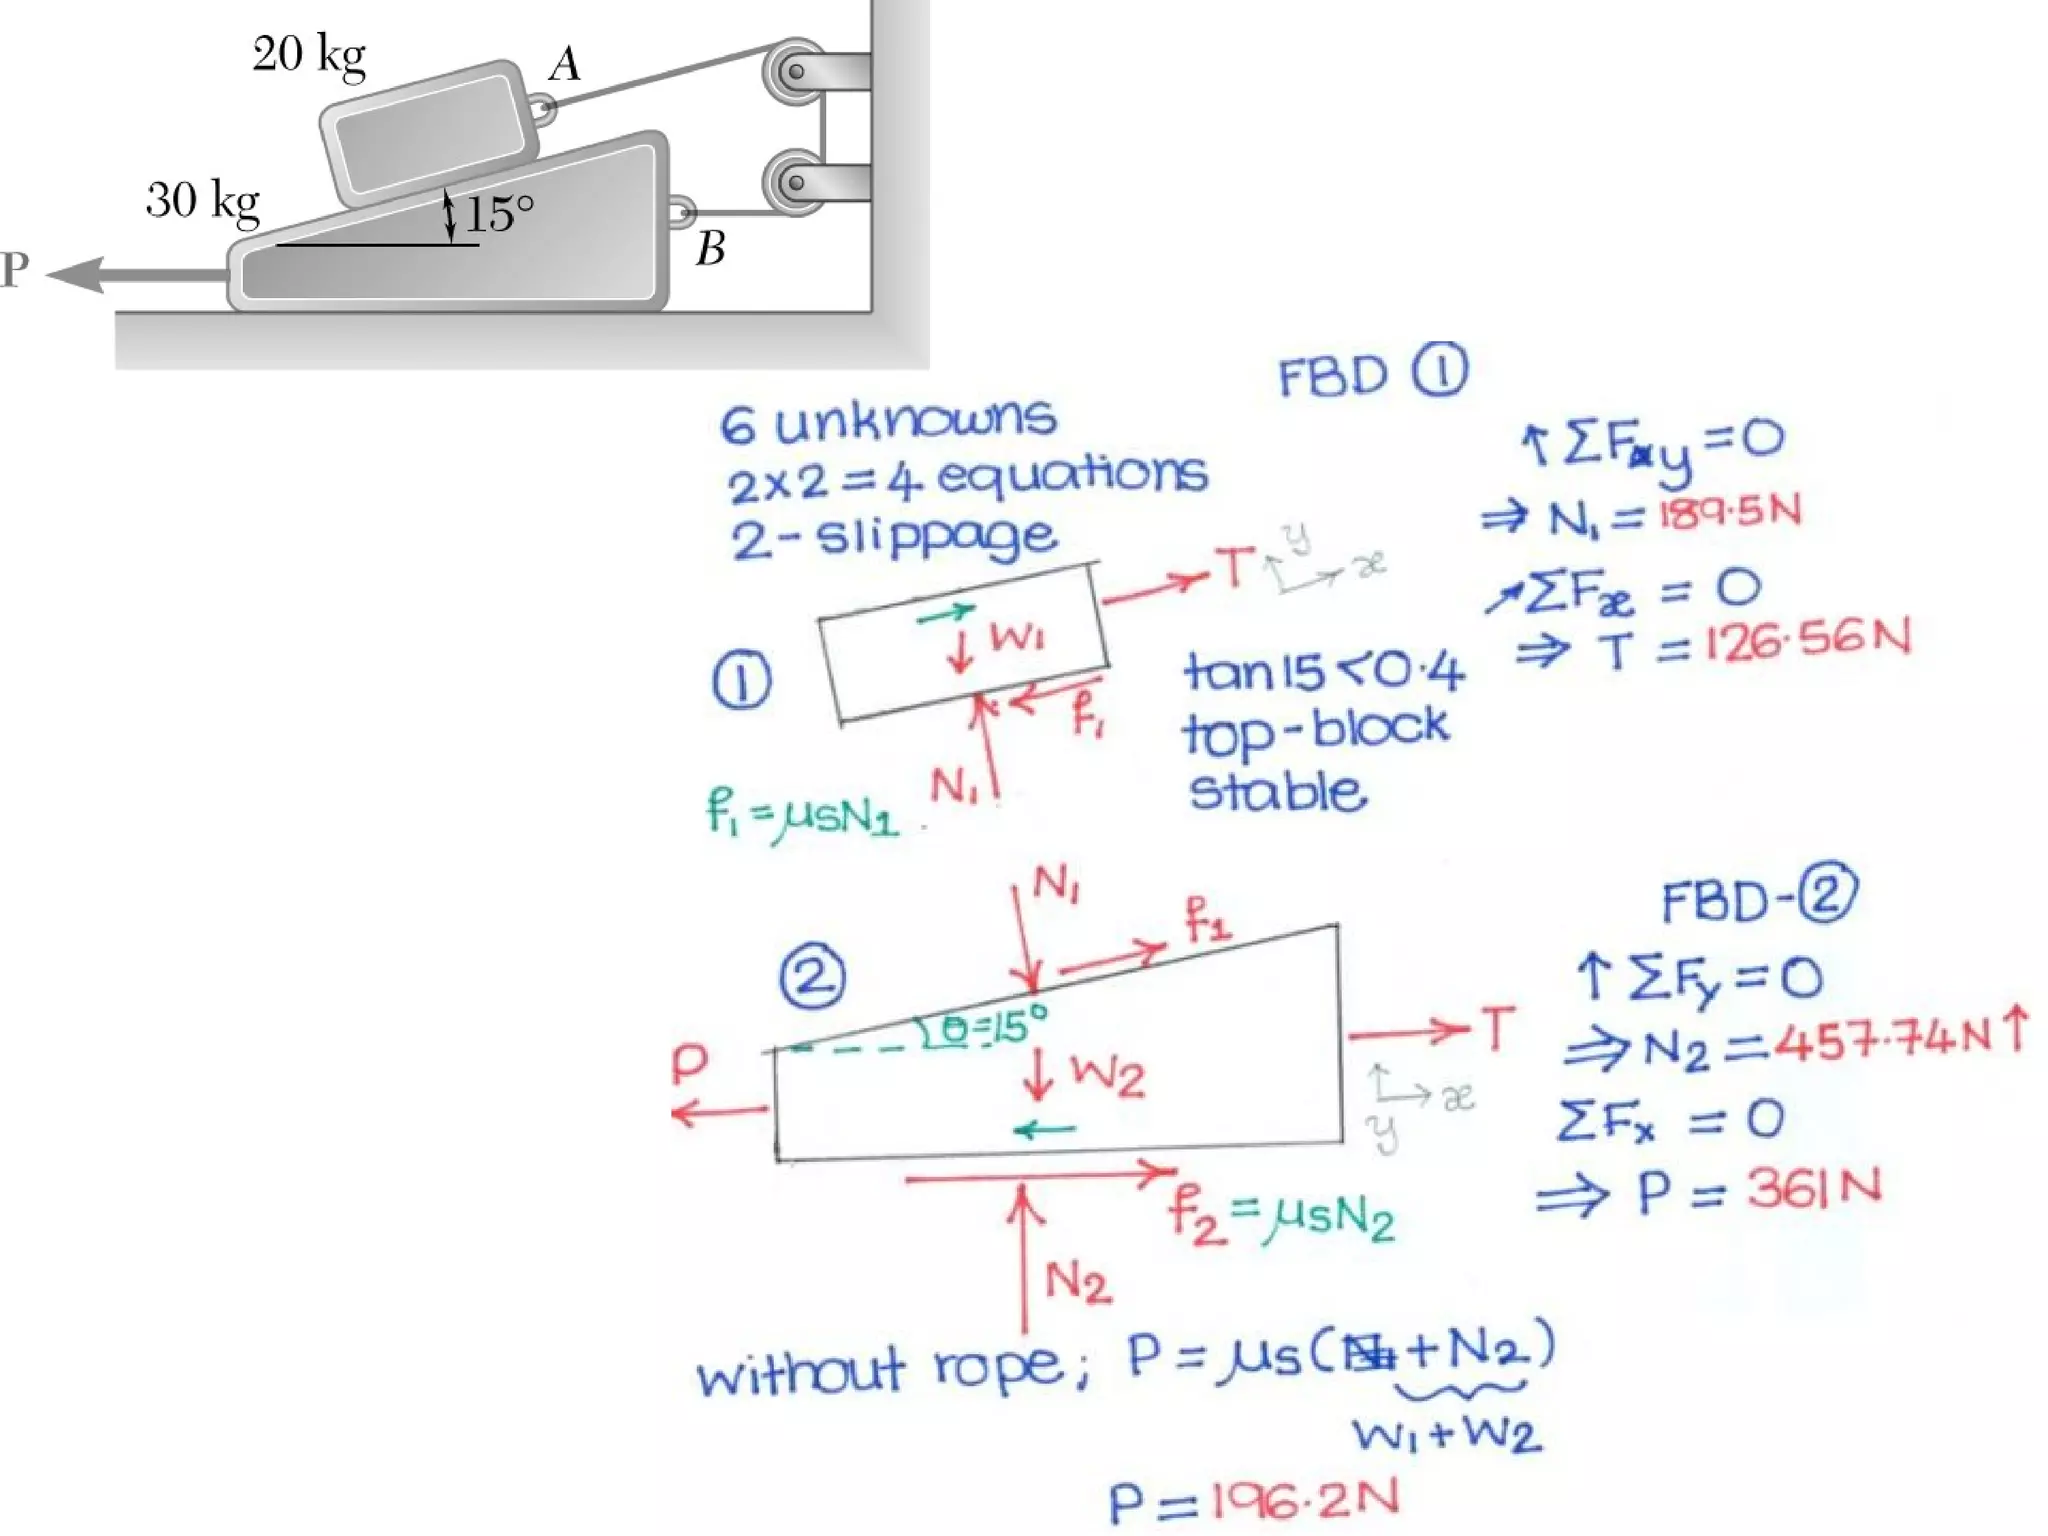 20 kg
A
30 kg
15°
B
P
FBD ①
6 unknowns
2x2 = 4 equations
2 - slippage
↑ ΣFy = 0
⇒ N₁ = 189.5N
↗ ΣFx = 0
⇒ T = 126.56N
T
y
x
W₁
①
f₁
N₁
f₁ = μsN₁
tan15 < 0.4
top-block
stable
N₁
f₁
②
θ=15°
P
W₂
T
y
x
f₂ = μsN₂
N₂
FBD-②
↑ ΣFy = 0
⇒ N₂ = 457.74N↑
ΣFx = 0
⇒ P = 361N
without rope; P = μs( +N₂)
W₁+W₂
P = 196.2N